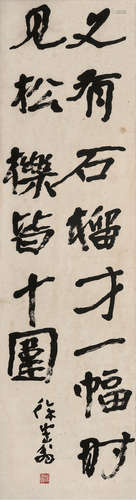 又有石榴才一幅时
见松櫟皆十圍
徐生翁